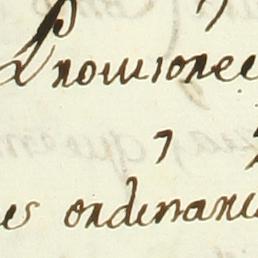 Prouisionee
es ordinanc